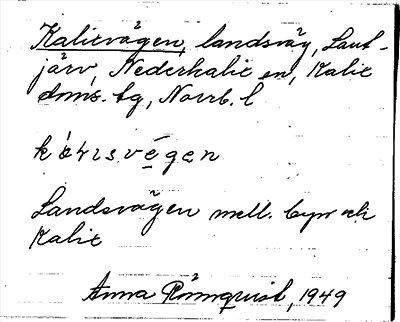 Kalixvägen, landsväg, Lant-
järv, Nederkalix sn, Kalix
doms. tg, Norrb. l
Landsvägen mell. byn och
Kalix
Anna Rönnquist, 1949